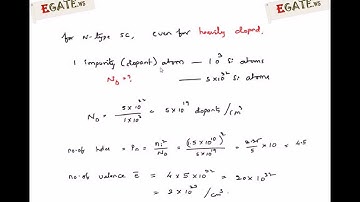 EGATE.WS
EGATE.WS
for N-type SC, even for heavily doped.
1 impurity (dopant) atom — 10^3 Si atoms
N_D = ? — 5×10^22 Si atoms
N_D = 5×10^22 / 1×10^3 = 5×10^19 dopants/cm^3
no. of holes = P_n = n_i^2 / N_D = (1.5×10^10)^2 / 5×10^19 = 2.25 / 5 × 10 = 4.5
no. of valence e̅ = 4×5×10^22 = 20×10^22
= 2×10^23 /cm^3.